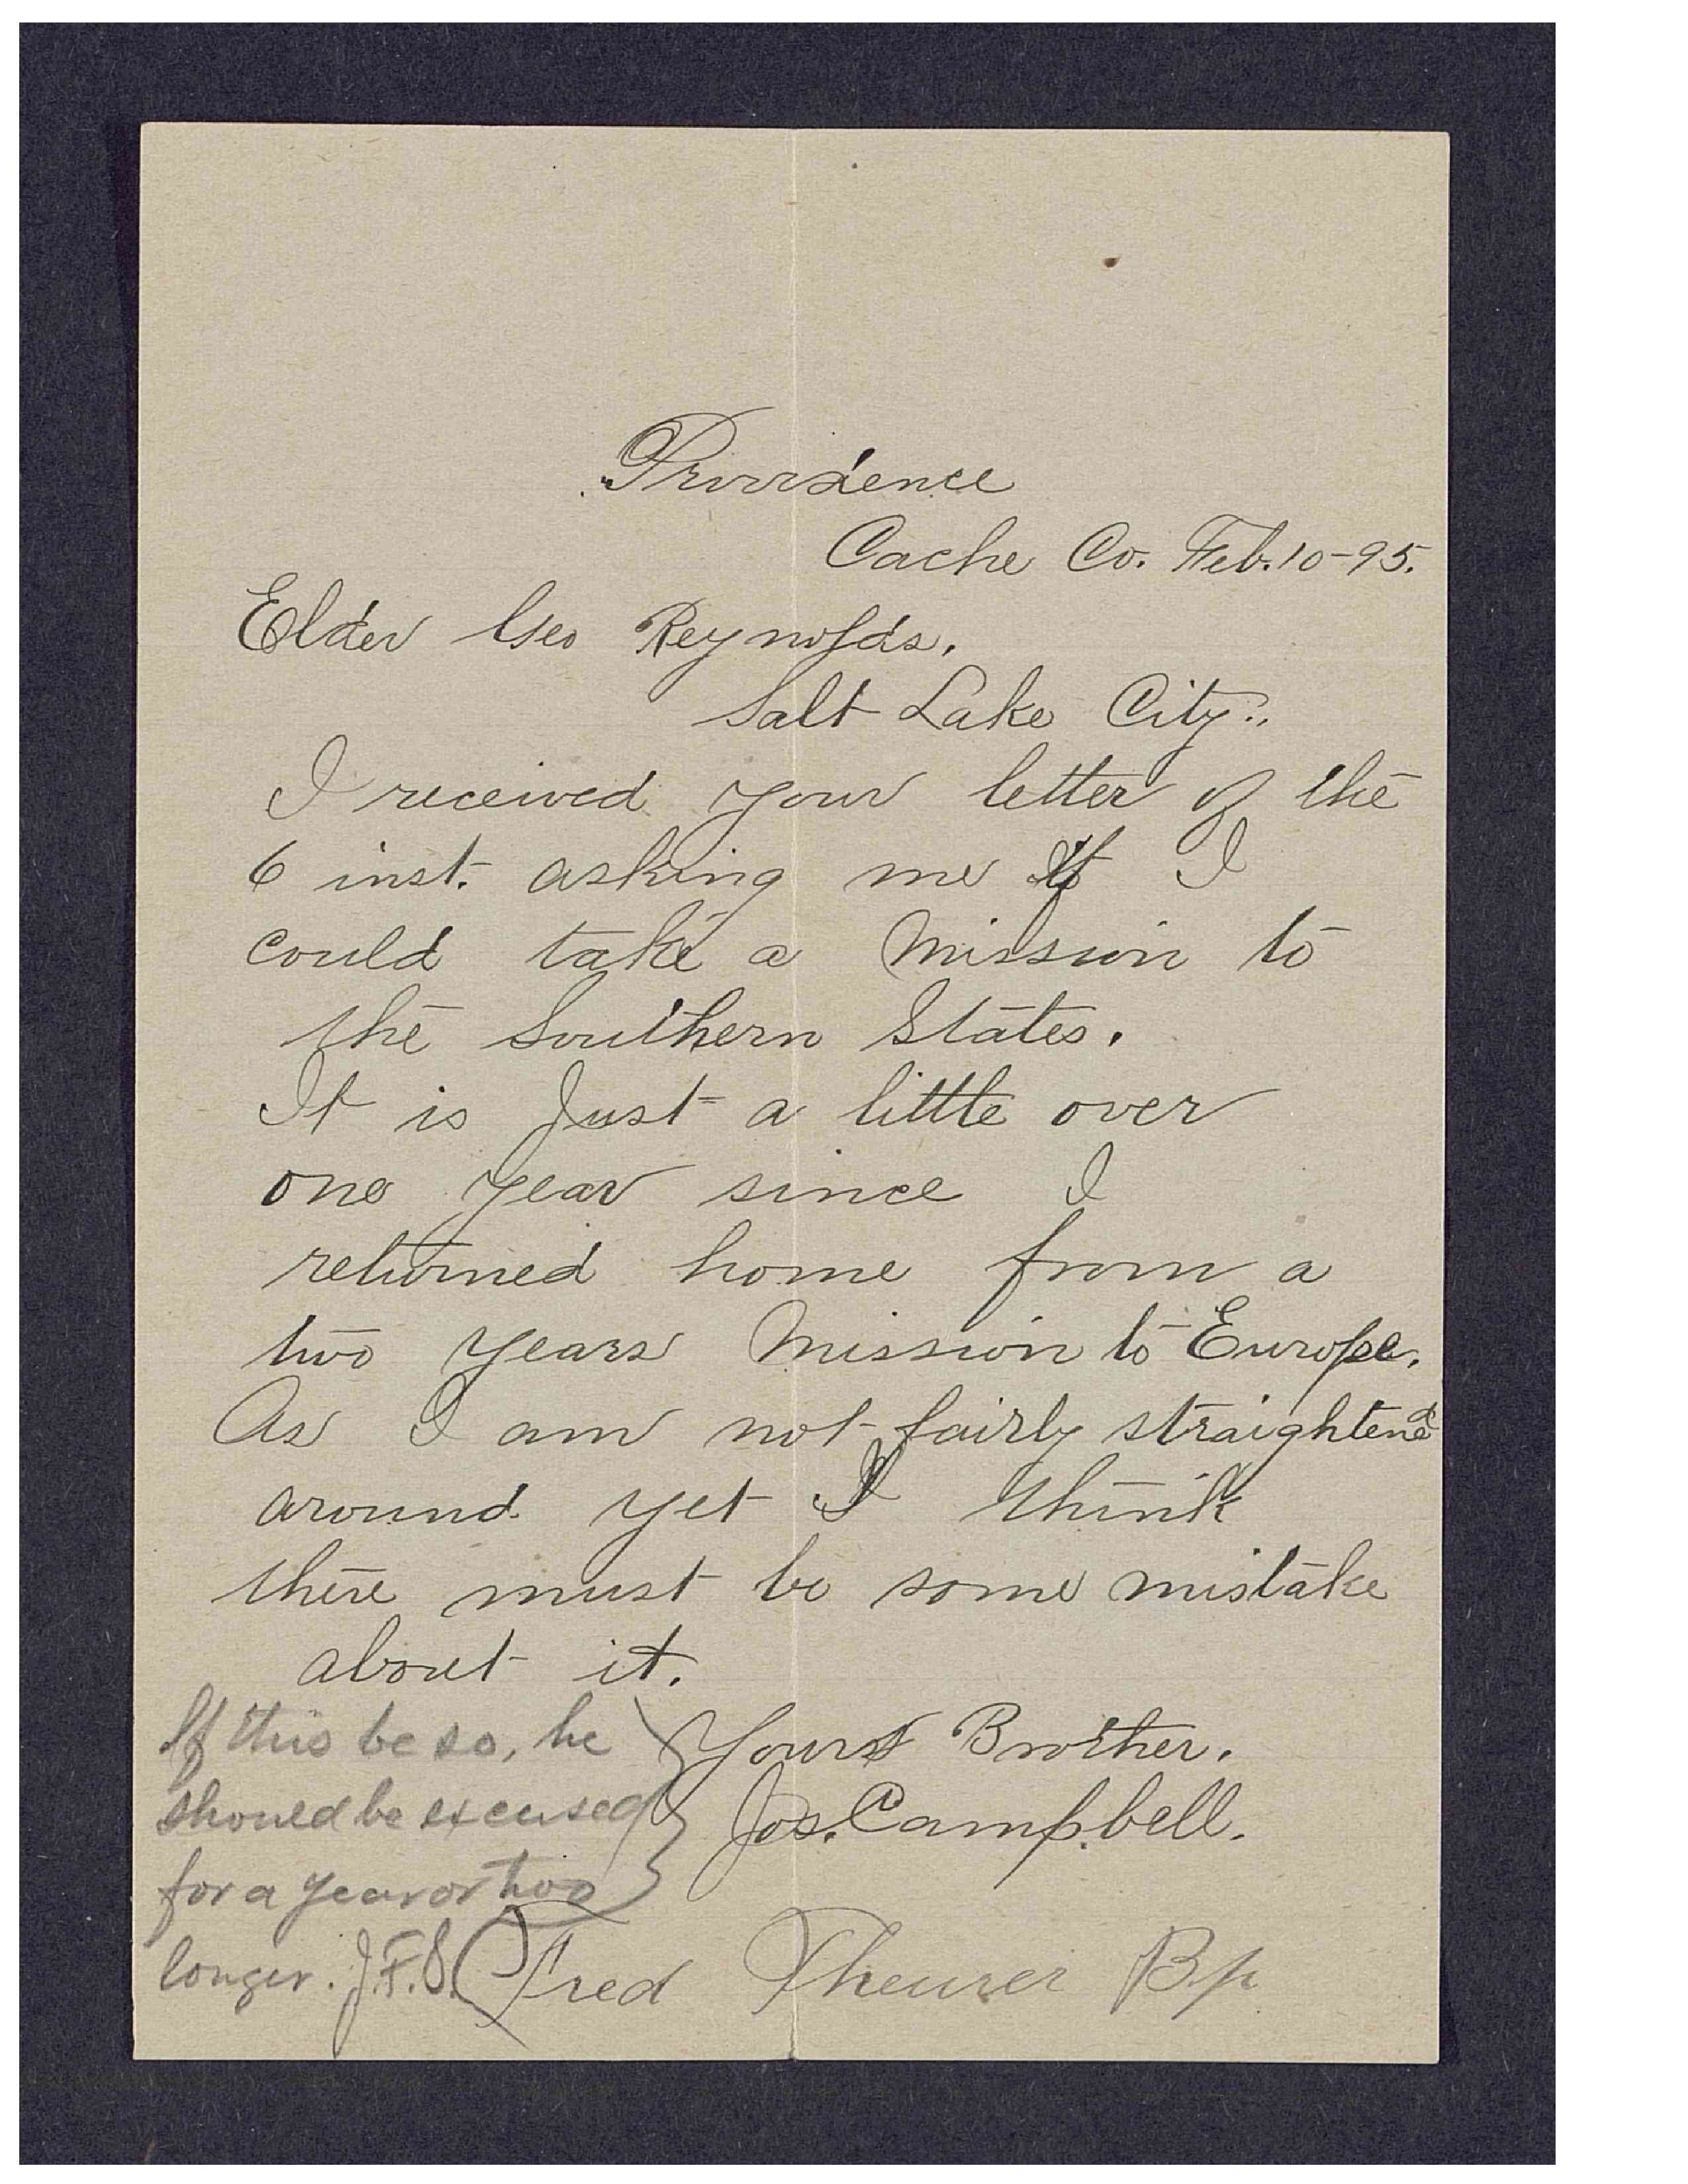 Providence
Cache Co. Feb. 10-95.
Elder Geo Reynolds,
Salt Lake City.,
I received your letter of the
6 inst. asking me if I
could take a Mission to
the Southern States.
It is Just a little over
one year since I
returned home from a
two years Mission to Europe.
As I am not fairly straightened
around yet I think
there must be some mistake
about it.
Yours Brother.
Jos. Campbell.
If this be so, he
should be excused
for a year or two
longer. J.F.S.
Fred Theurer Bp